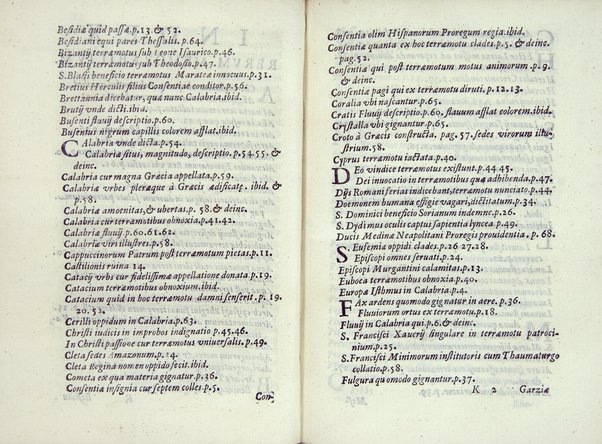 Besidiæ quid passæ.p.13.& 52.
Besidiani equi pares Thessalis.p.64.
Bizantij terræmotus sub Leone Isaurico.p.46.
Bizantij terræmotus sub Theodosio.p.47.
S.Blasij beneficio terræmotus Maratea innocuus.p.31.
Bretius Herculis filius Consentiæ conditor.p.56.
Brettannia dicebatur, quæ nunc Calabria.ibid.
Brutij vnde dicti.ibid.
Busenti fluuij descriptio.p.60.
Busentus nigrum capillis colorem afflat.ibid.
Calabria vnde dicta.p.54.
Calabriæ situs, magnitudo, descriptio.p.54.55. &
deinc.
Calabria cur magna Græcia appellata.p.59.
Calabriæ vrbes pleræque à Græcis ædificatę. ibid. &
p.58.
Calabriæ amoenitas, & vbertas. p. 58. & deinc.
Calabria cur terræmotibus obnoxia.p.41.42.
Calabriæ fluuij.p.60.61.62.
Calabriæ viri illustres.p.58.
Cappuccinorum Patrum post terræmotum pietas.p.11.
Castilionis ruina 14.
Catacij vrbs cur fidelissima appellatione donata.p.19.
Catacium terræmotibus obnoxium.ibid.
Catacium quid in hoc terræmotu damni senserit. p. 19
20. 52.
Cerilli oppidum in Calabria.p.63.
Christi iudicis in improbos indignatio p.45.46.
In Christi passione cur terræmotus vniuersalis.p.49.
Cleta sedes Amazonum.p.14.
Cleta Regina nomen oppido fecit.ibid.
Cometa ex qua materia gignatur.p.36.
Consentia insignia cur septem colles p.5.
Con-
Consentia olim Hispanorum Proregum regia.ibid.
Consentiæ quanta ex hoc terræmotu clades.p.5. & deinc.
pag.52.
Consentiæ qui post terræmotum motus animorum .p.9.
& deinc.
Consentiæ pagi qui ex terræmotu diruti. p.12.13.
Coralia vbi nascantur.p.65.
Cratis Fluuij descriptio.p.60. flauum afflat colorem.ibid.
Crystalla vbi gignantur.p.65.
Croto à Græcis constructa. pag.57.sedes virorum illu-
strium.58.
Cyprus terræmotu iactata.p.40.
Deo vindice terræmotus existunt.p.44 45.
Dei inuocatio in terræmotibus quàm adhibenda.p.47.
Dijs Romani ferias indicebant,terræmotu nunciato.p.44.
Doemonem humana effigie vagari,dictitatum.p.34.
S. Dominici beneficio Sorianum indemne.p.26.
S. Dydimus oculis captus sapientia lyncea.p.49.
Ducis Medinæ Neapolitani Proregis prouidentia . p.68.
S. Eufemiæ oppidi clades.p.26 27.28.
Episcopi omnes seruati.p.24.
Episcopi Murgantini calamitas.p.13.
Euboea terræmotibus obnoxia.p.40.
Europæ Isthmus in Calabria.p.4.
Fax ardens quomodo gignatur in aere.p.36.
Fluuiorum ortus ex terræmotu.p.18.
Fluuij in Calabria qui.p.6.& deinc.
S. Francisci Xauerij singulare in terræmotu patroci-
nium.p.25.
S.Francisci Minimorum institutoris cum Thaumaturgo
collatio.p.58.
Fulgura quomodo gignantur.p.37.
K 2 Garziæ